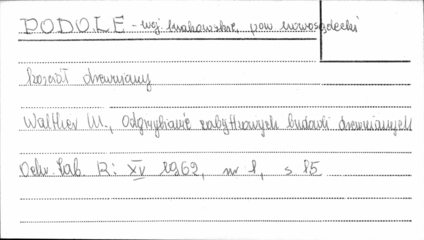 PODOLE - woj. krakowskie, pow. nowosądecki
kościół drewniany
Walther M., Odgrzybianie zabytkowych budowli drewnianych
Ochr. Zab. R: XV 1962, nr 1, s 85